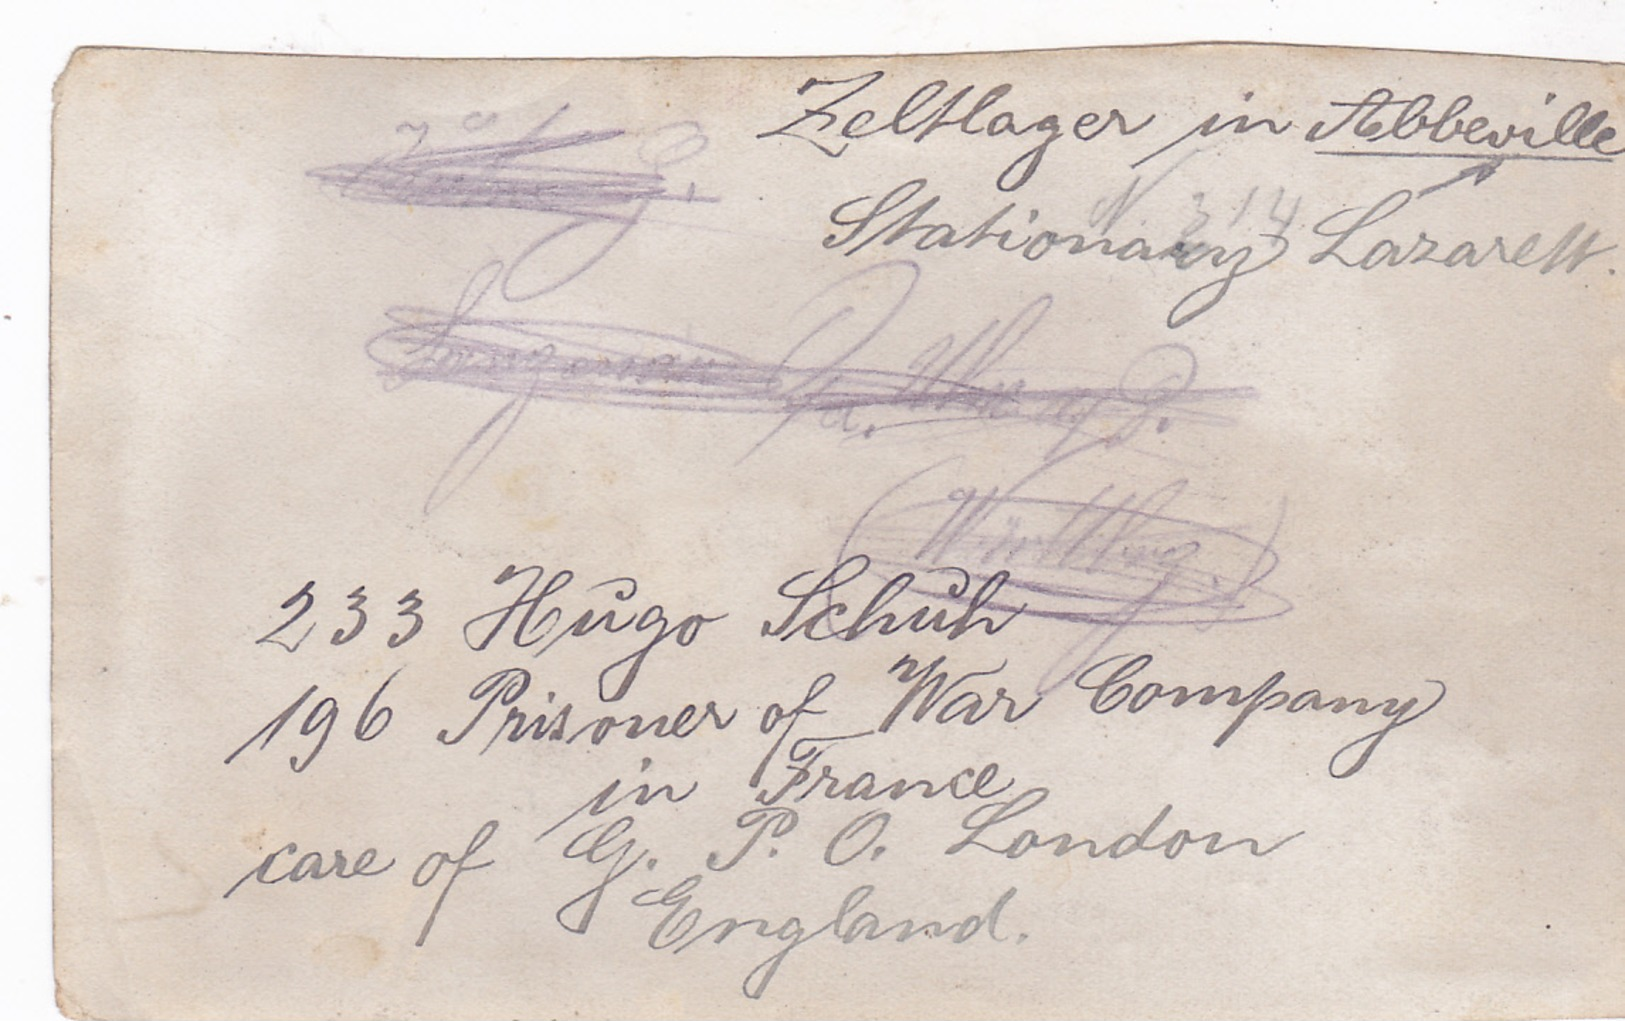 Zeltlager in Abbeville
N. 314
Stationary Lazarett.
233 Hugo Schuh
196 Prisoner of War Company
in France
care of G. P. O. London
England.